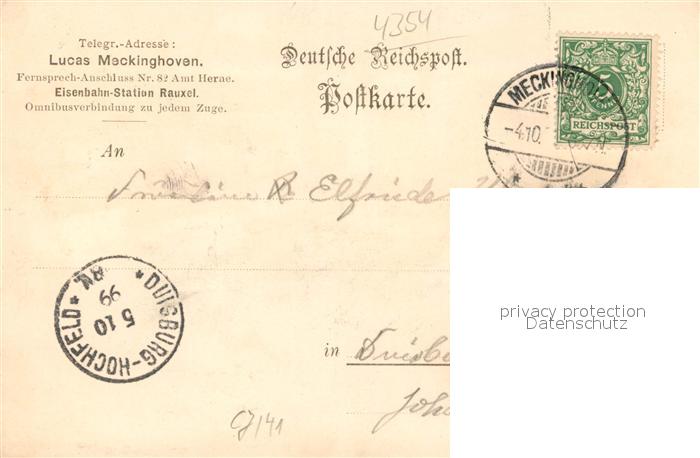 4354
Telegr.-Adresse:
Lucas Meckinghoven.
Fernsprech-Anschluss Nr. 82 Amt Herne.
Eisenbahn-Station Rauxel.
Omnibusverbindung zu jedem Zuge.
Deutsche Reichspost.
Postkarte.
5
REICHSPOST
MECKINGHO
-4.10.
An
Fräulein Elfriede
DUISBURG-HOCHFELD
5 10
99
in Duisb
Joh
privacy protection
Datenschutz